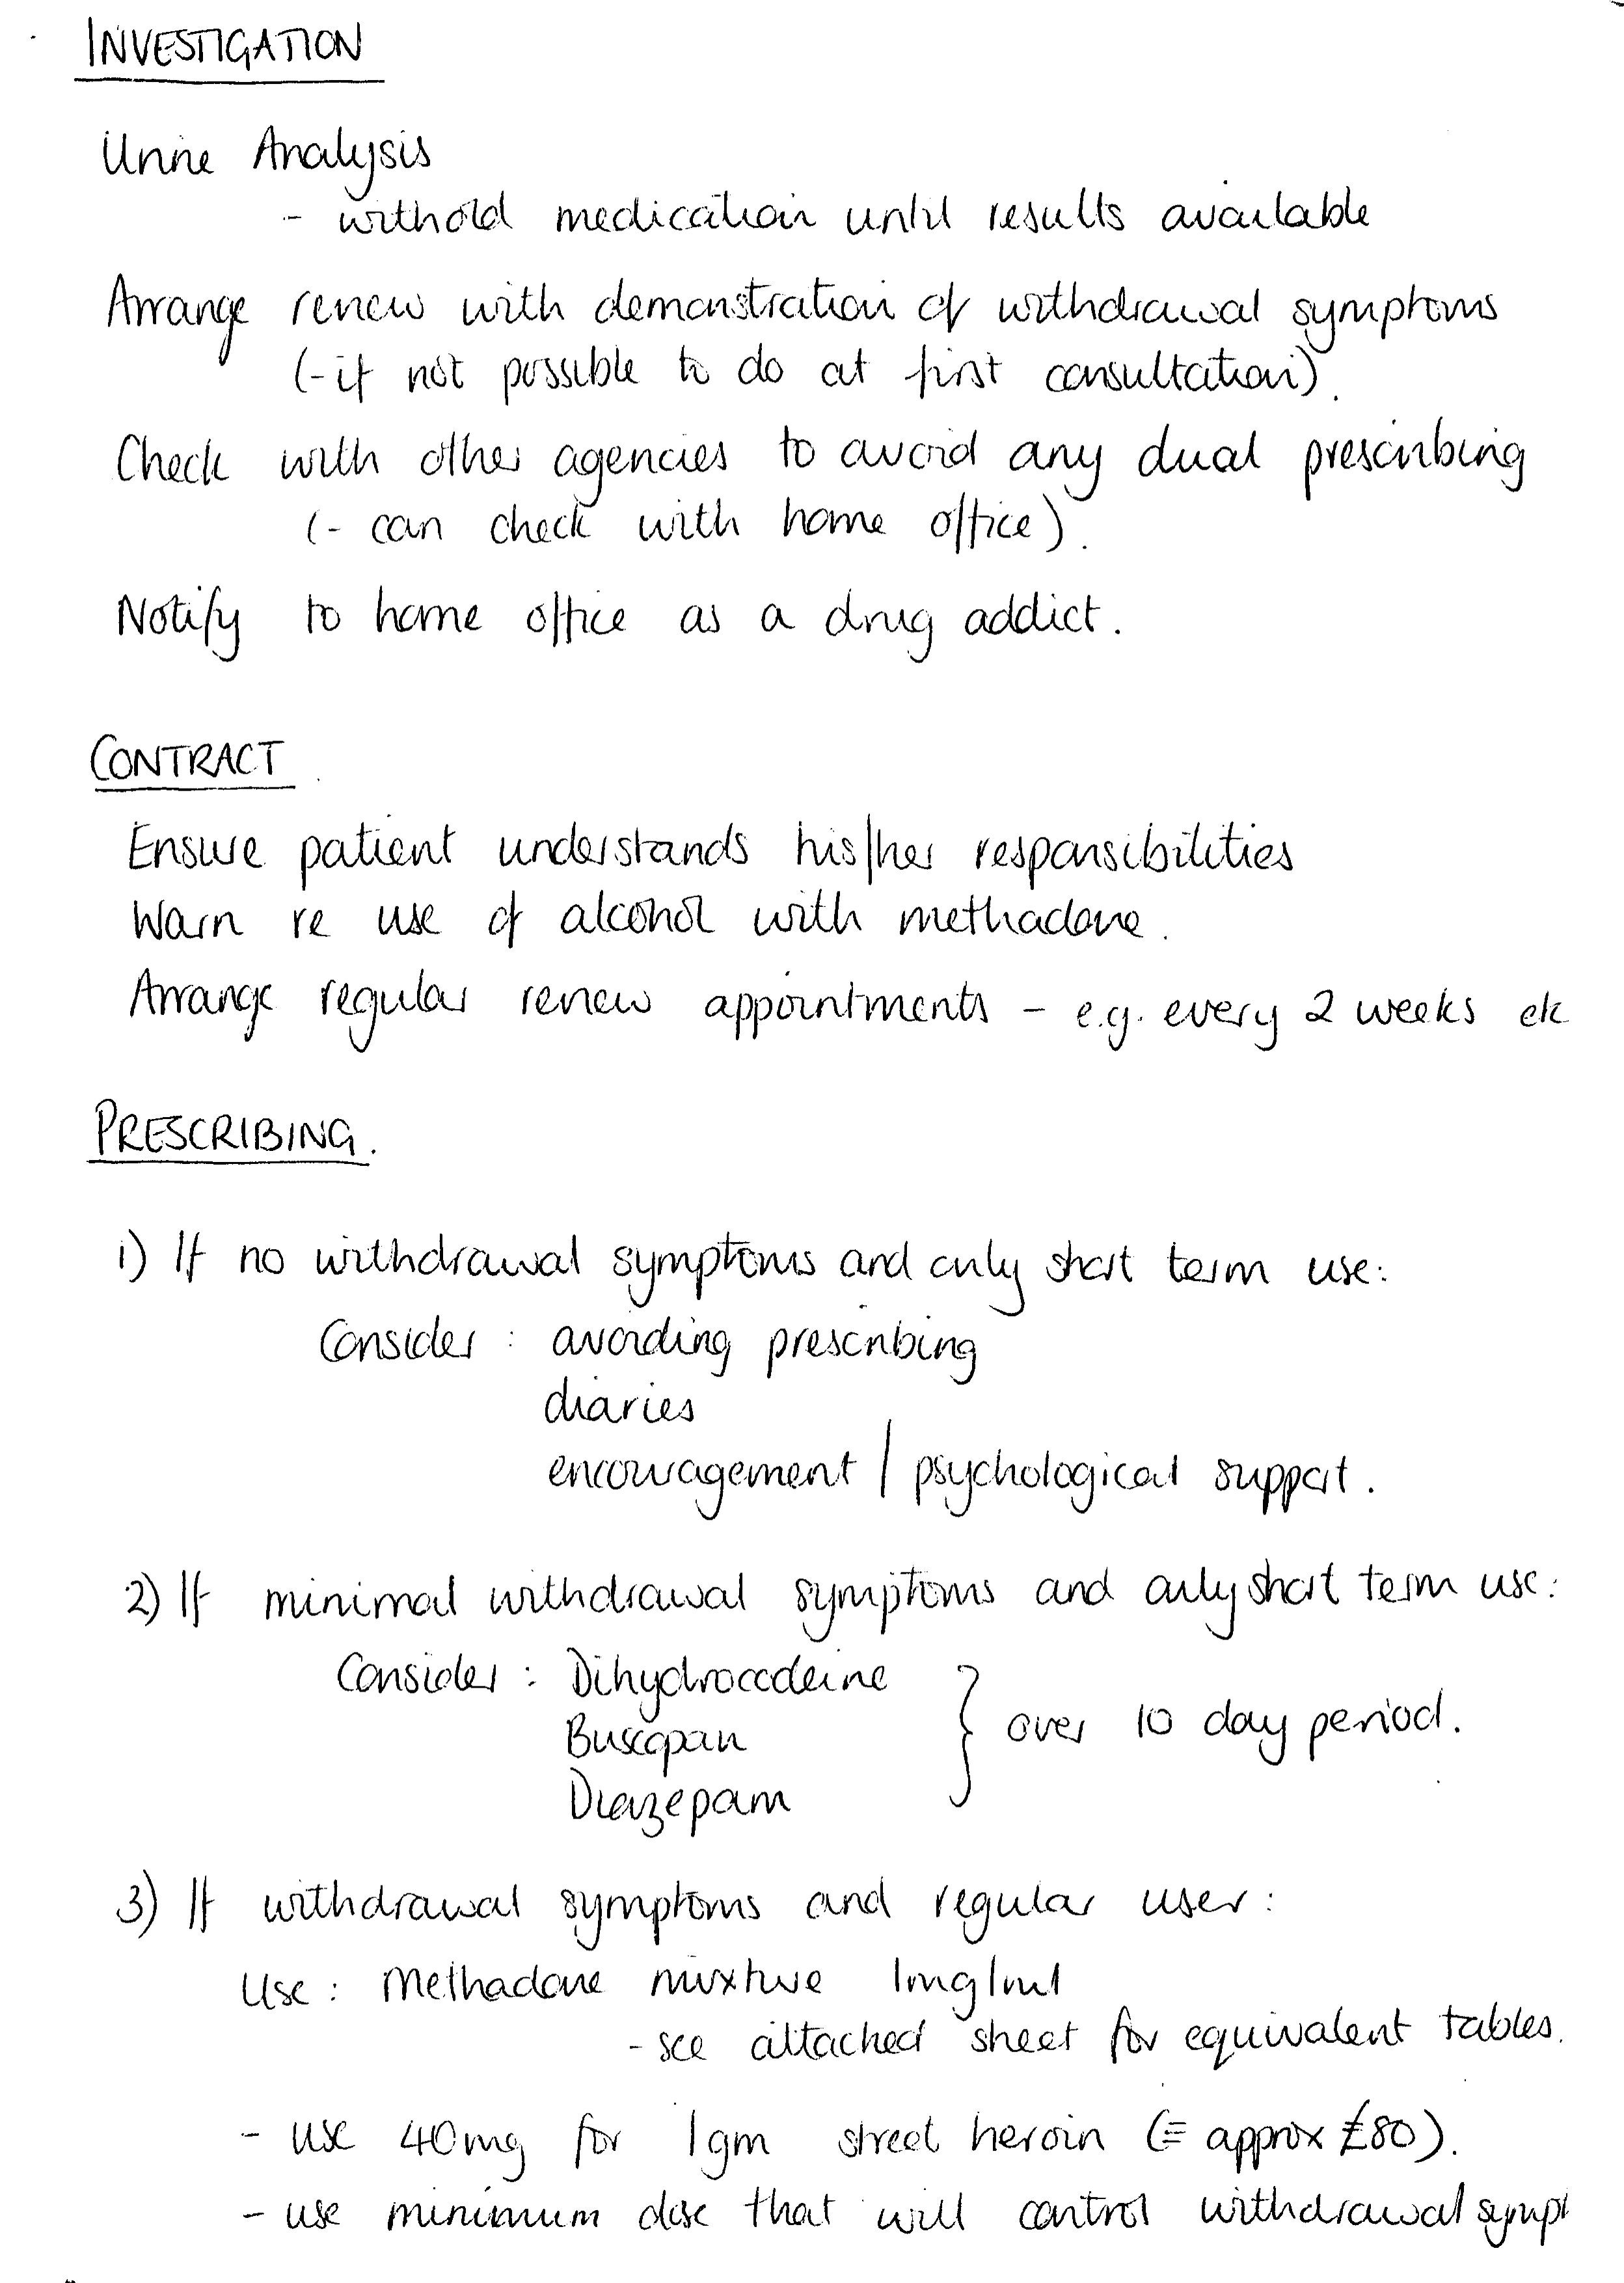 INVESTIGATION
Urine Analysis
- withold medication until results available
Arrange review with demonstration of withdrawal symptoms
(- if not possible to do at first consultation).
Check with other agencies to avoid any dual prescribing
(- can check with home office).
Notify to home office as a drug addict.
CONTRACT
Ensure patient understands his/her responsibilities
Warn re use of alcohol with methadone.
Arrange regular review appointments - e.g. every 2 weeks etc
PRESCRIBING.
1) If no withdrawal symptoms and only short term use:
Consider : avoiding prescribing
diaries
encouragement / psychological support.
2) If minimal withdrawal symptoms and only short term use:
Consider : Dihydrocodeine
Buscopan } over 10 day period.
Diazepam
3) If withdrawal symptoms and regular user:
Use : Methadone mixture 1mg/ml
- see attached sheet for equivalent tables.
- use 40mg for 1gm street heroin (≡ approx £80).
- use minimum dose that will control withdrawal sympt